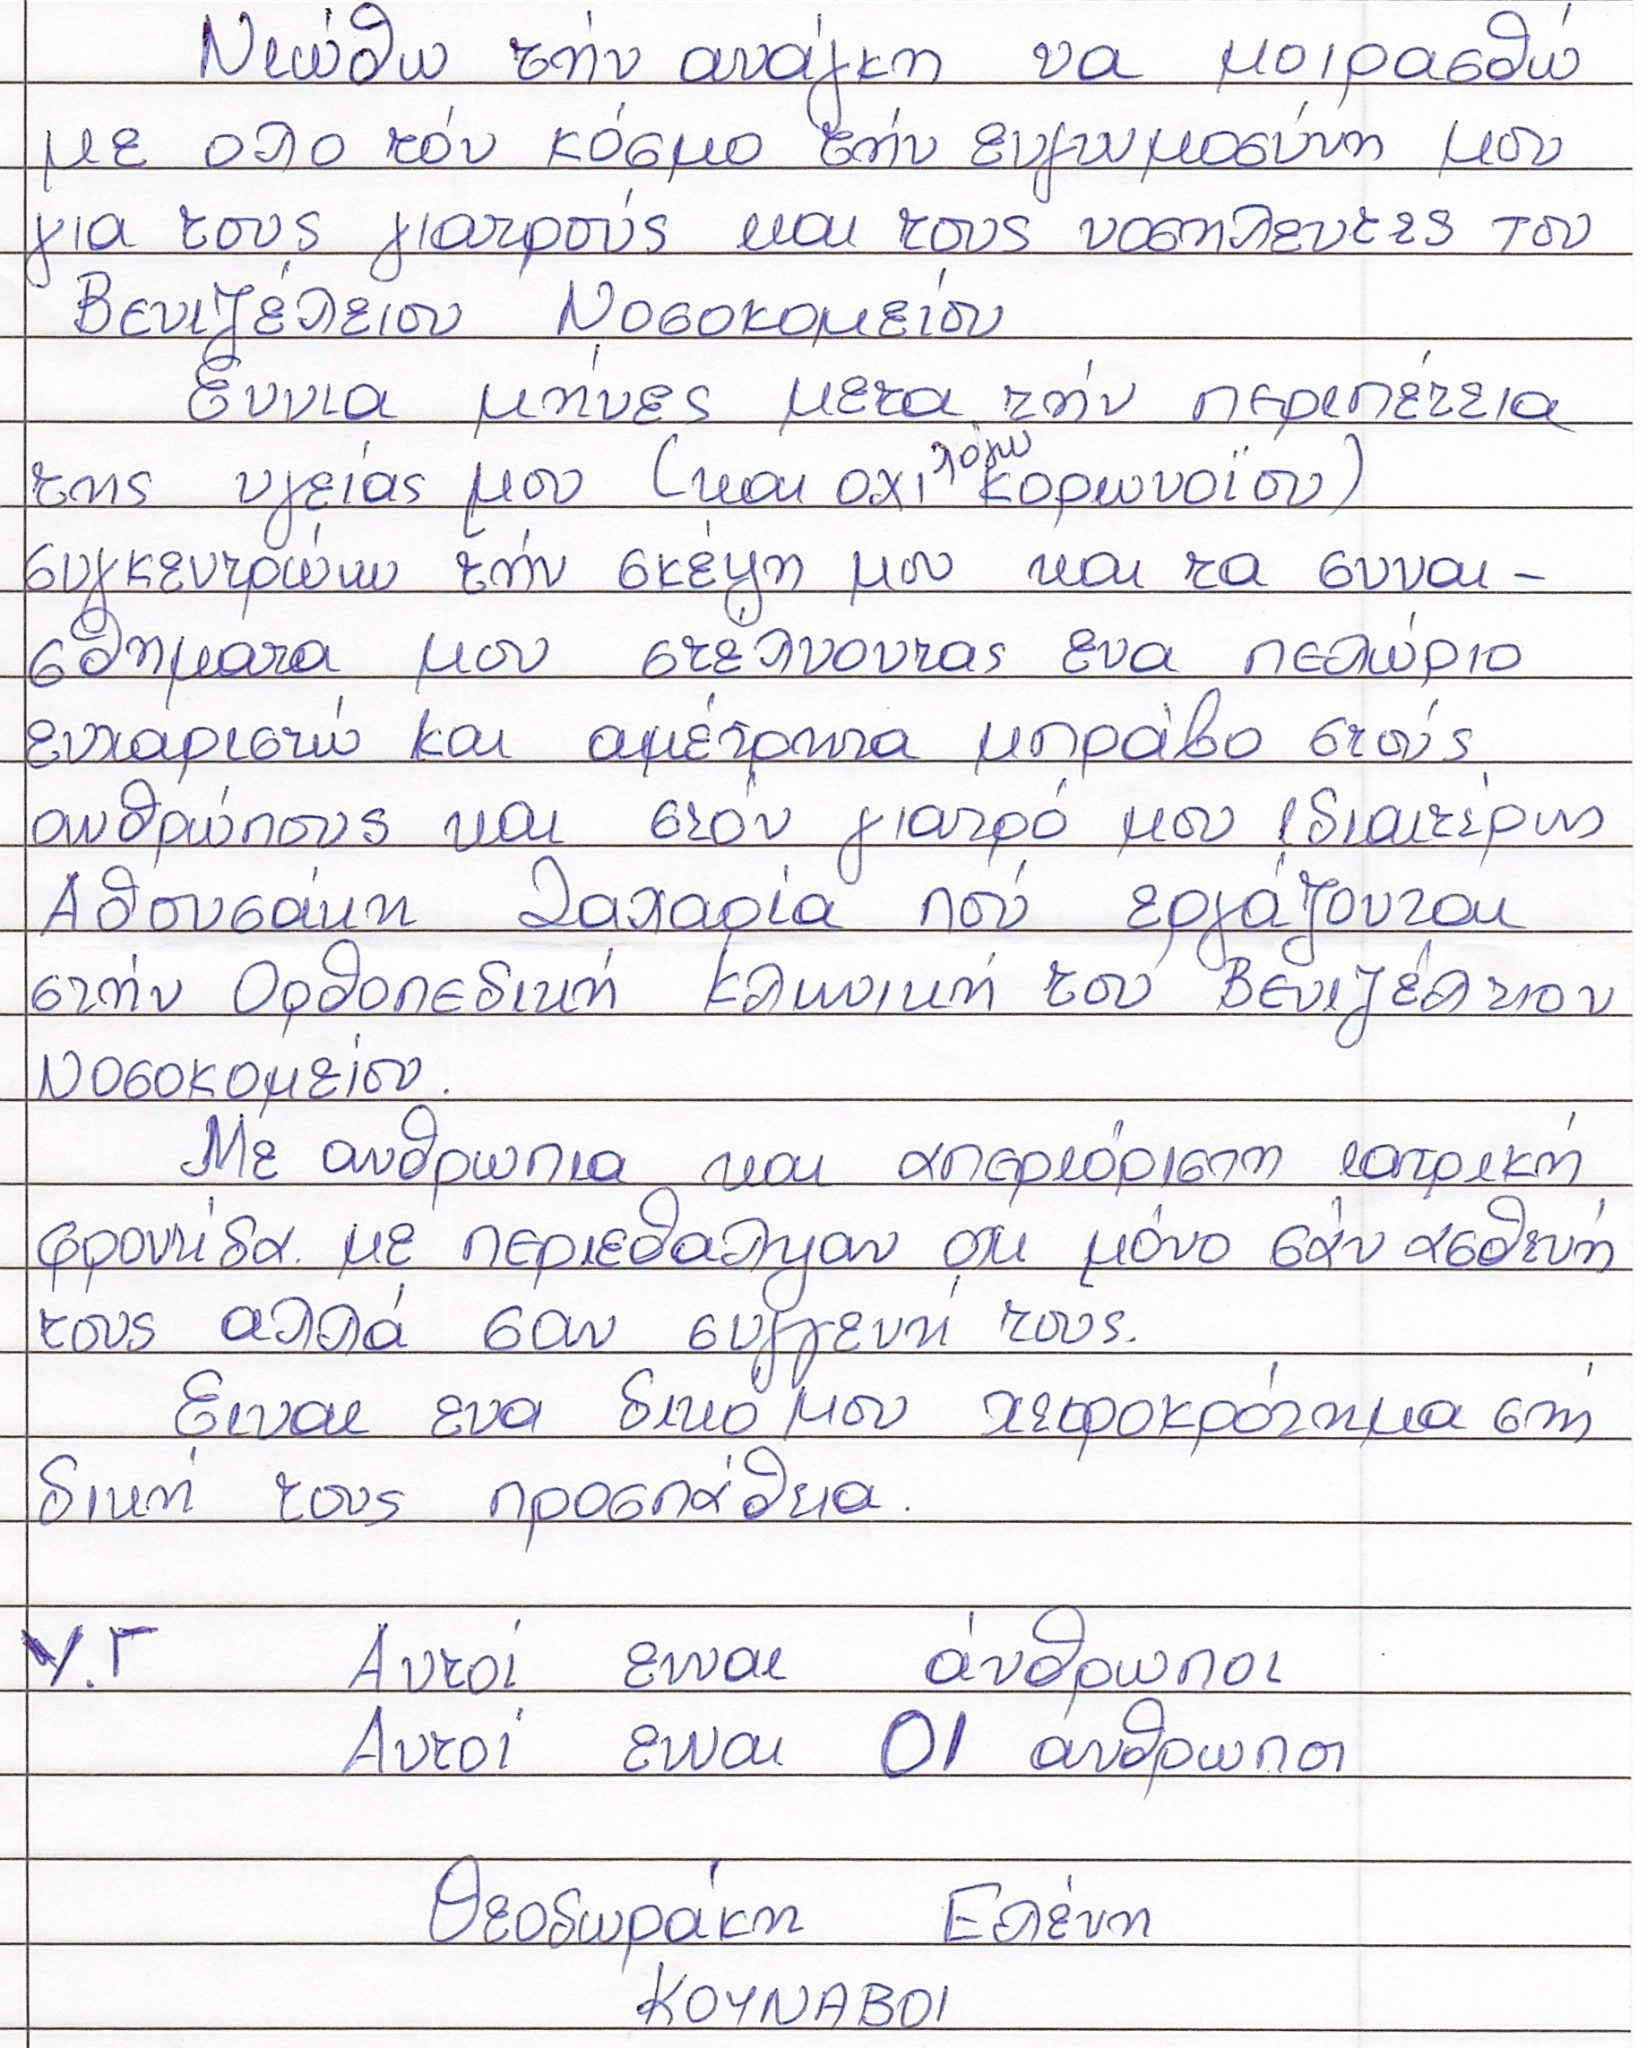 Νιώθω τήν ανάγκη να μοιρασθώ
με ολο τόν κόσμο τήν ευγνωμοσύνη μου
για τους γιατρούς και τους νοσηλευτες του
Βενιζέλειου Νοσοκομείου
Εννια μήνες μετα τήν περιπέτεια
της υγείας μου (και οχι λόγω κορωνοϊου)
συγκεντρώνω τήν σκέψη μου και τα συναι-
σθηματα μου στέλνοντας ενα πελώριο
ευχαριστώ και αμέτρητα μπράβο στούς
ανθρώπους και στόν γιατρό μου ιδιαιτέρως
Αθουσάκη Ζαχαρία πού εργάζονται
στήν Ορθοπεδική Κλινική του Βενιζέλειου
Νοσοκομείου.
Με ανθρωπια και απεριόριστη ιατρική
φροντίδα με περιεθαλψαν οχι μόνο σάν ασθενή
τους αλλά σαν συγγενή τους.
Ειναι ενα δικο μου χειροκρότημα στή
δική τους προσπάθεια.
Υ.Γ Αυτοί ειναι άνθρωποι
Αυτοί ειναι ΟΙ ανθρωποι
Θεοδωράκη Ελένη
ΚΟΥΝΑΒΟΙ